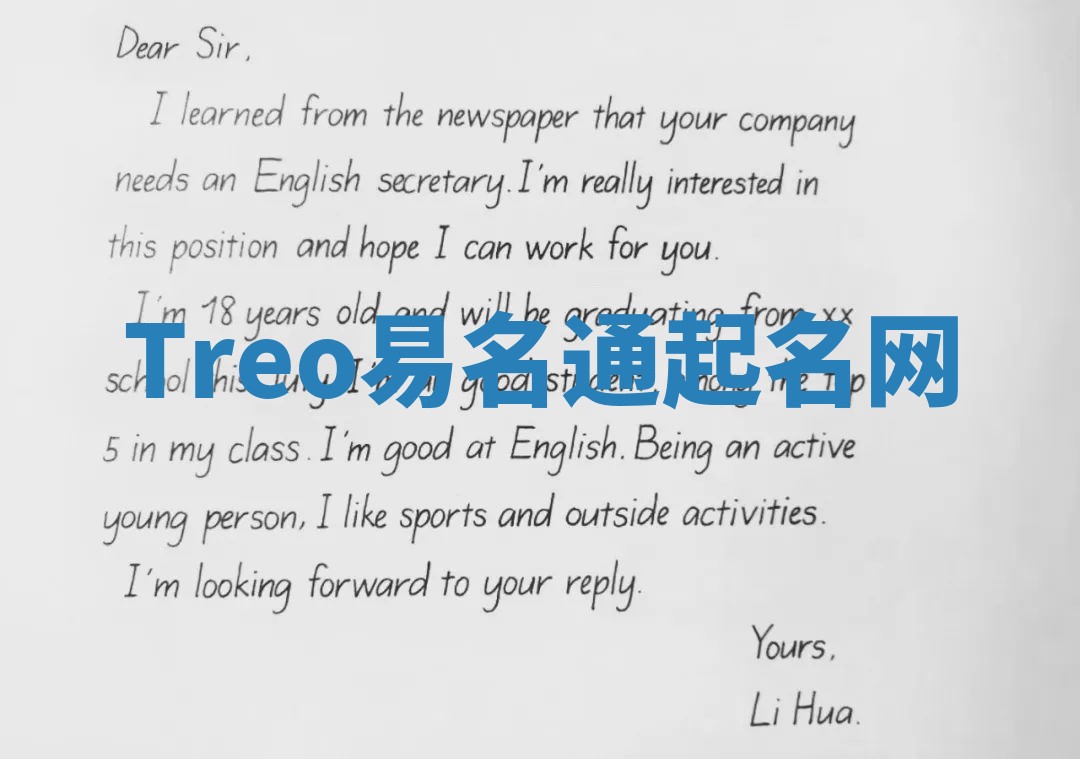 Dear Sir,
I learned from the newspaper that your company
needs an English secretary. I'm really interested in
this position and hope I can work for you.
I'm 18 years old and will be graduating from xx
Treo易名通起名网
school this July. I'm a good student among the top
5 in my class. I'm good at English. Being an active
young person, I like sports and outside activities.
I'm looking forward to your reply.
Yours,
Li Hua.